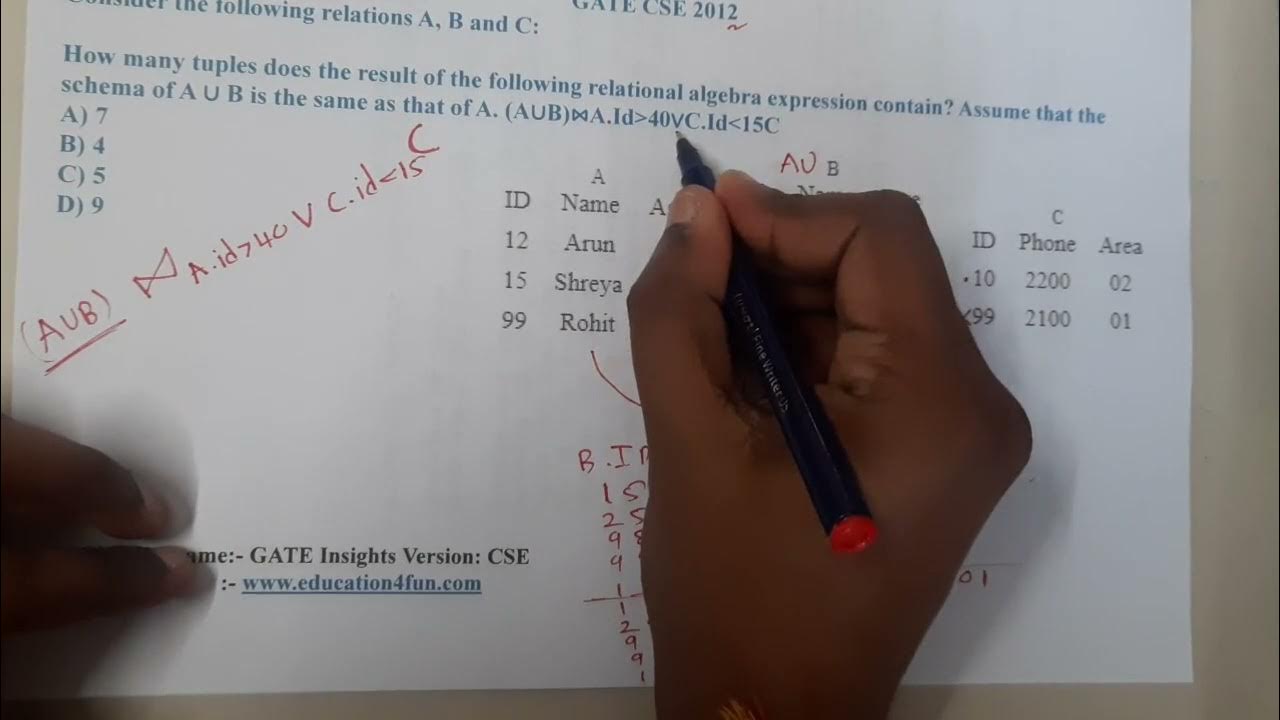 GATE CSE 2012
the following relations A, B and C:
How many tuples does the result of the following relational algebra expression contain? Assume that the
schema of A ∪ B is the same as that of A. (A∪B)⋈A.Id>40∨C.Id<15C
A) 7
B) 4
C) 5
D) 9
(A∪B) ⋈ A.id>40 ∨ C.id<15 C
A
ID Name
12 Arun
15 Shreya
99 Rohit
A∪ B
C
ID Phone Area
10 2200 02
99 2100 01
B.I
15
25
9
9
1
1
2
9
9
1
01
ame:- GATE Insights Version: CSE
:- www.education4fun.com